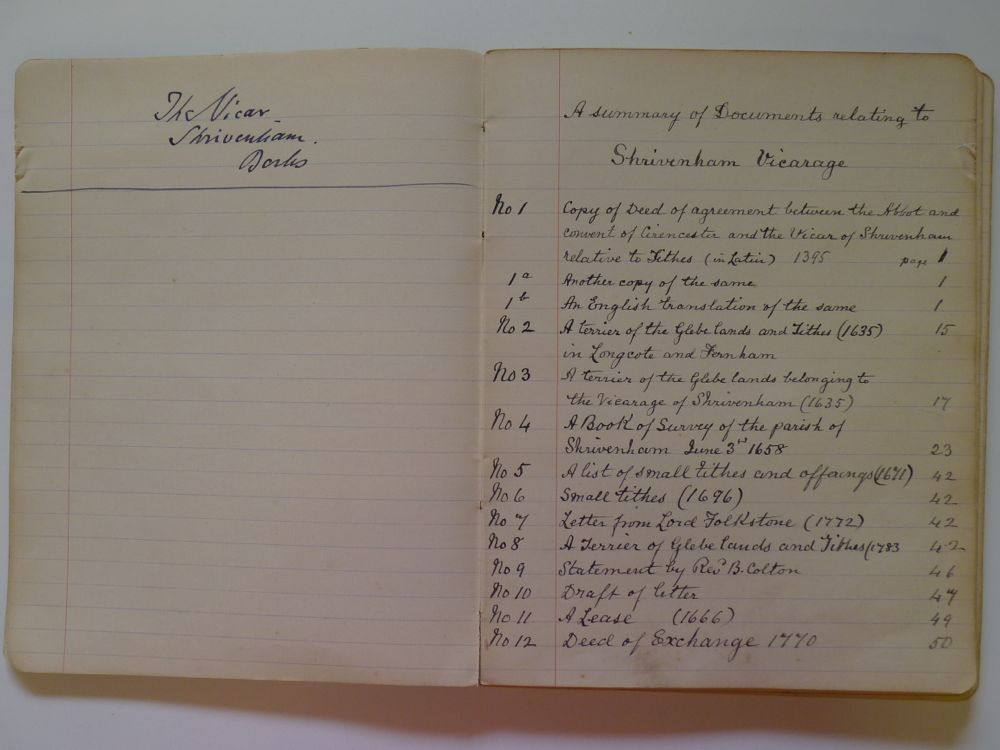 The Vicar
Shrivenham.
Berks
A summary of Documents relating to
Shrivenham Vicarage
No 1 Copy of Deed of agreement between the Abbot and
convent of Cirencester and the Vicar of Shrivenham
relative to Tithes (in Latin) 1395 page 1
1a Another copy of the same 1
1b An English translation of the same 1
No 2 A terrier of the Glebe lands and Tithes (1635) 15
in Longcote and Fernham
No 3 A terrier of the Glebe lands belonging to
the Vicarage of Shrivenham (1635) 17
No 4 A Book of Survey of the parish of
Shrivenham June 3rd 1658 23
No 5 A list of small tithes and offerings (1671) 42
No 6 Small tithes (1696) 42
No 7 Letter from Lord Folkstone (1772) 42
No 8 A Terrier of Glebe lands and Tithes (1783 42
No 9 Statement by Revd B. Colton 46
No 10 Draft of letter 47
No 11 A Lease (1666) 49
No 12 Deed of Exchange 1770 50